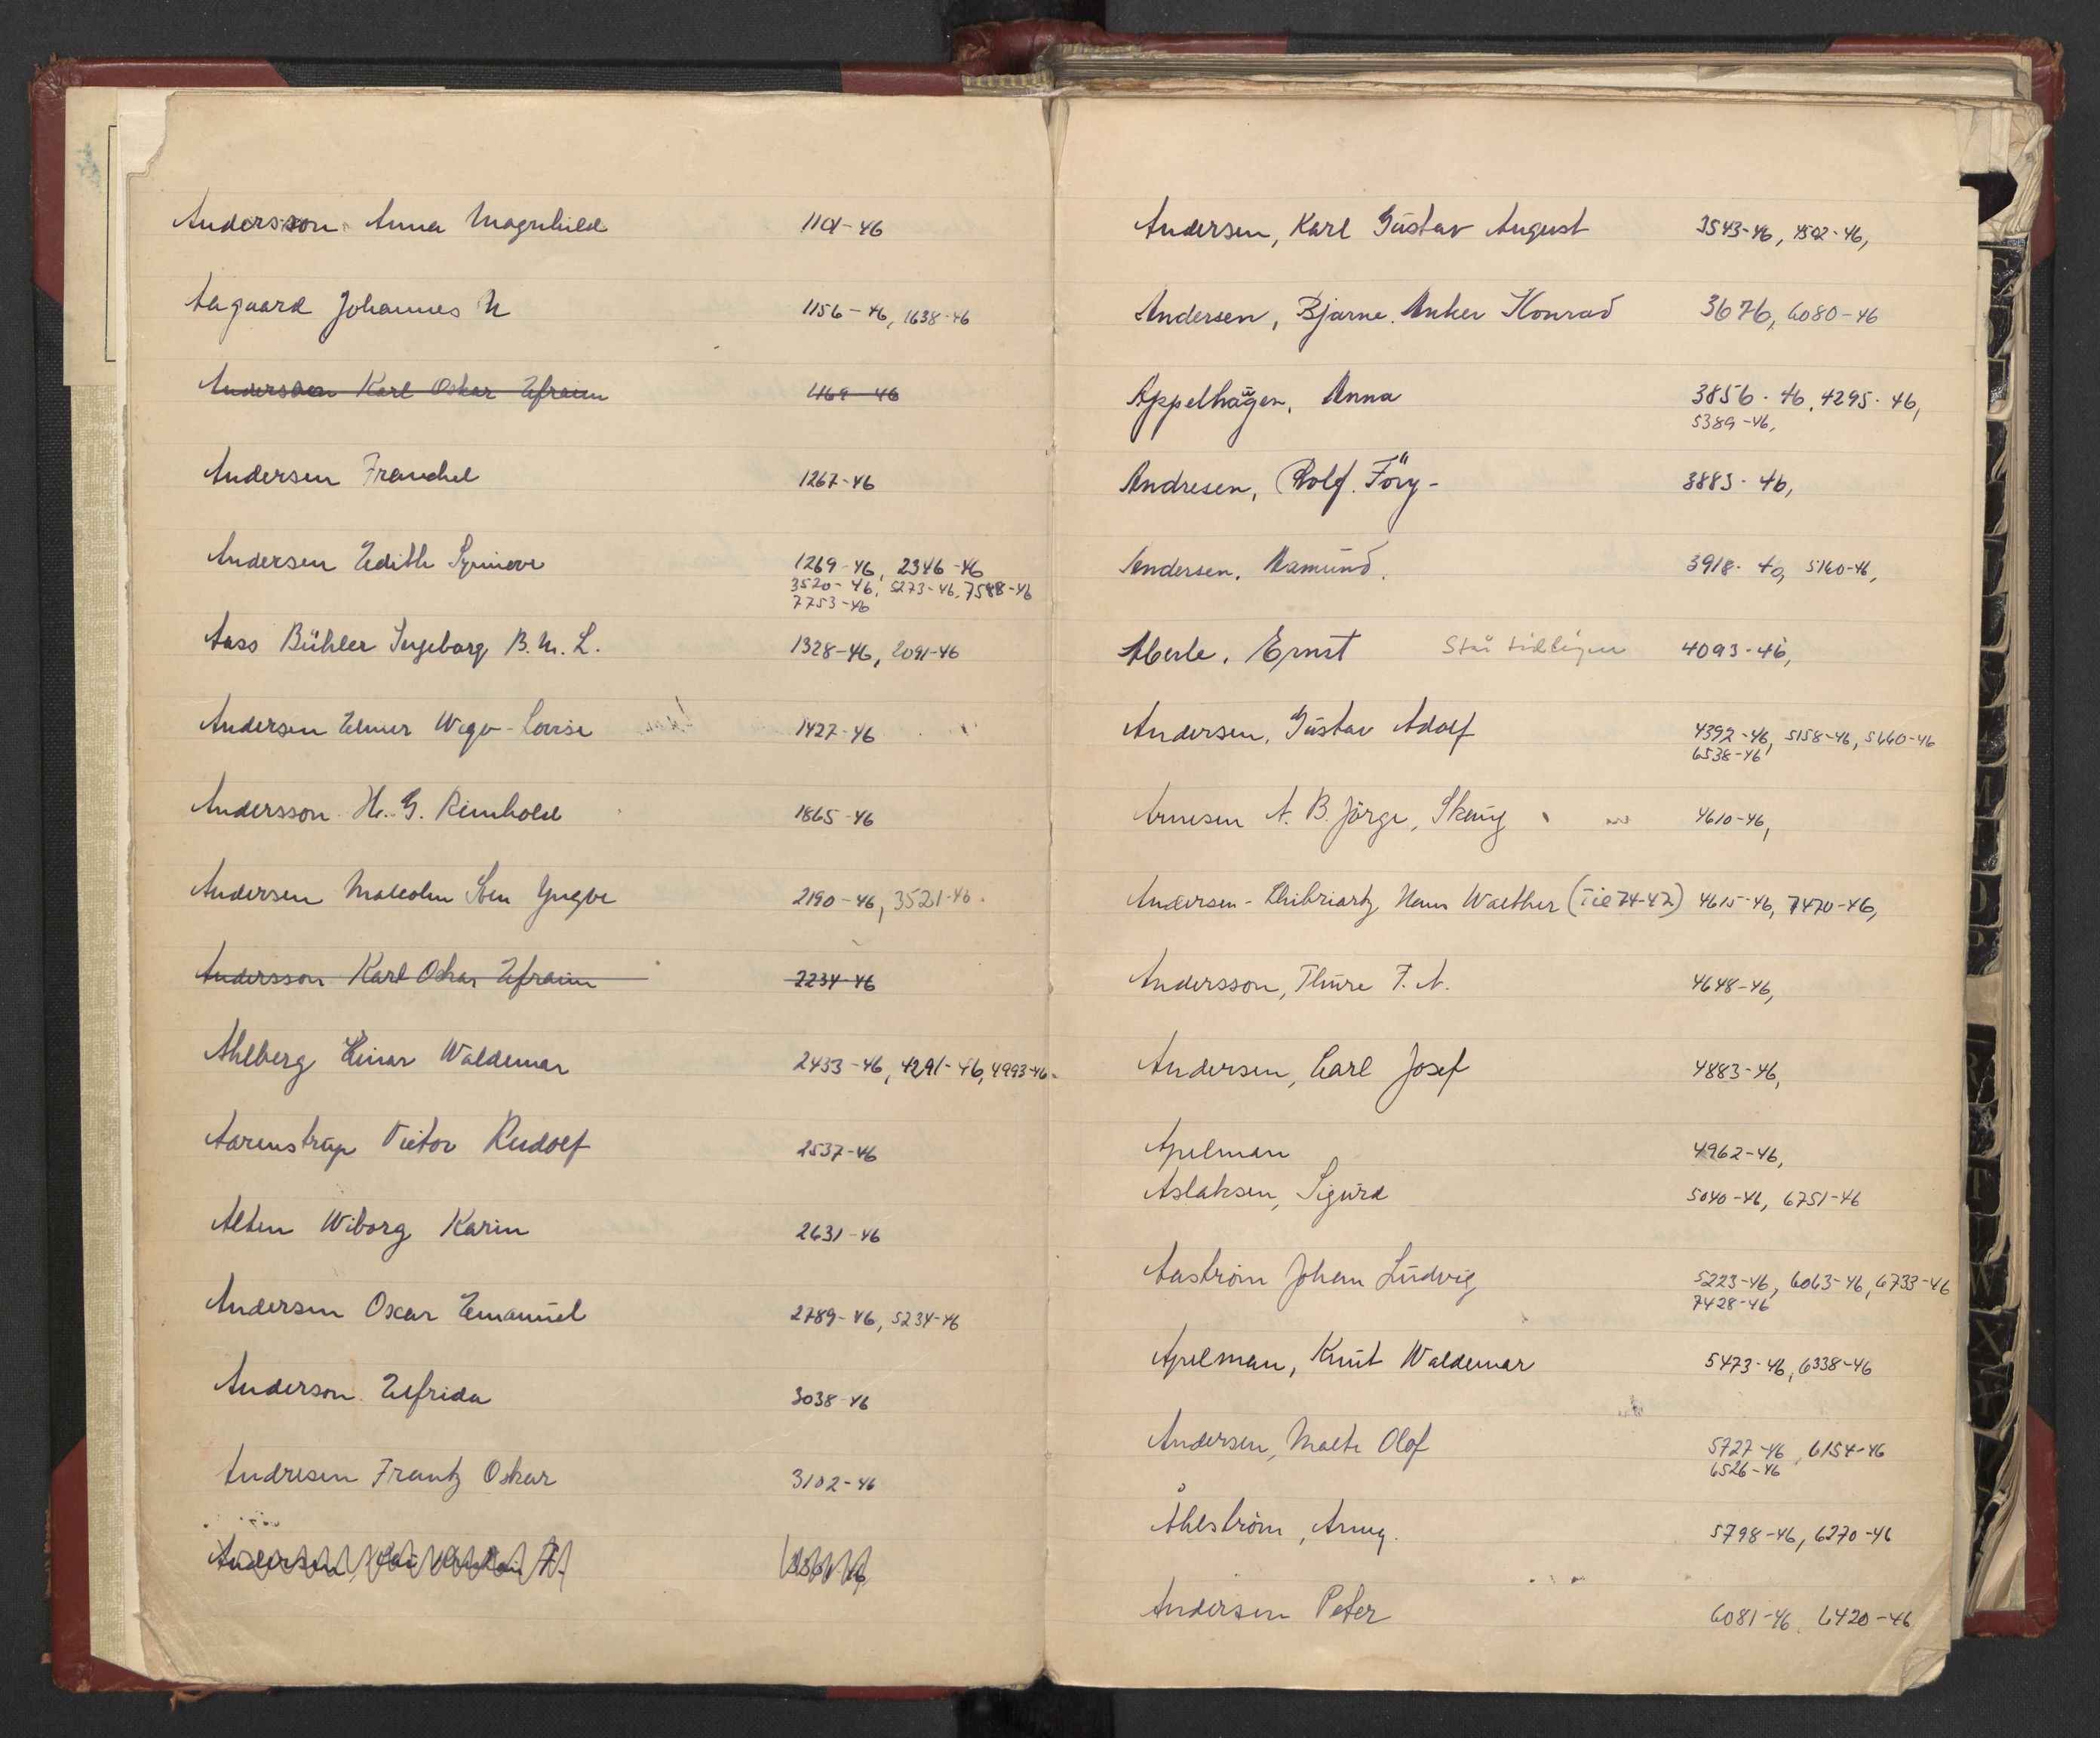 Andersson Anna Magnhild 1101-46
Aagaard Johannes N 1156-46, 1638-46
Andersson Karl Oskar Efraim 1169-46
Andersen Franchel 1267-46
Andersen Edith Synnøve 1269-46, 2346-46
3520-46, 5273-46, 7588-46
7753-46
Aass Bühler Ingeborg B. M. L. 1328-46, 2091-46
Andersen Elmer Wego-Lovise 1427-46
Andersson H. G. Reinhold 1865-46
Andersen Malcolm Sten Yngve 2190-46, 3521-46
Andersson Karl Oskar Efraim 2234-46
Ahlberg Einar Waldemar 2433-46, 4291-46, 4993-46
Aarenstrup Victor Rudolf 2537-46
Alten Wiborg Karin 2631-46
Andersen Oscar Emanuel 2789-46, 5234-46
Anderson Elfrida 3038-46
Andresen Frantz Oskar 3102-46
Andersen
Andersen, Karl Gustav August 3543-46, 4502-46,
Andersen, Bjarne Anker Konrad 3676, 6080-46
Appelhagen, Anna 3856-46, 4295-46,
5389-46,
Andresen, Rolf. Törg- 3883-46,
Andersen, Aamund. 3918-46, 5160-46,
Aberle, Ernst Står tidligere 4093-46,
Andersen, Gustav Adolf 4392-46, 5158-46, 5660-46
6538-46
Arnesen A. B. Jörge, Skeng 4610-46,
Andersen- Hans Walther (Til 74-47) 4615-46, 7470-46,
Andersson, Thure F. A. 4648-46,
Andersen, Carl Josef 4883-46,
Apelman 4962-46,
Aslaksen, Sigurd 5040-46, 6751-46
Aaström Johan Ludvig 5223-46, 6063-46, 6733-46
7428-46
Apelman, Knut Waldemar 5473-46, 6338-46
Andersen, Malte Olof 5727-46, 6154-46
6526-46
Åhlström, Arney. 5798-46, 6270-46
Andersen Peter 6081-46, 6420-46